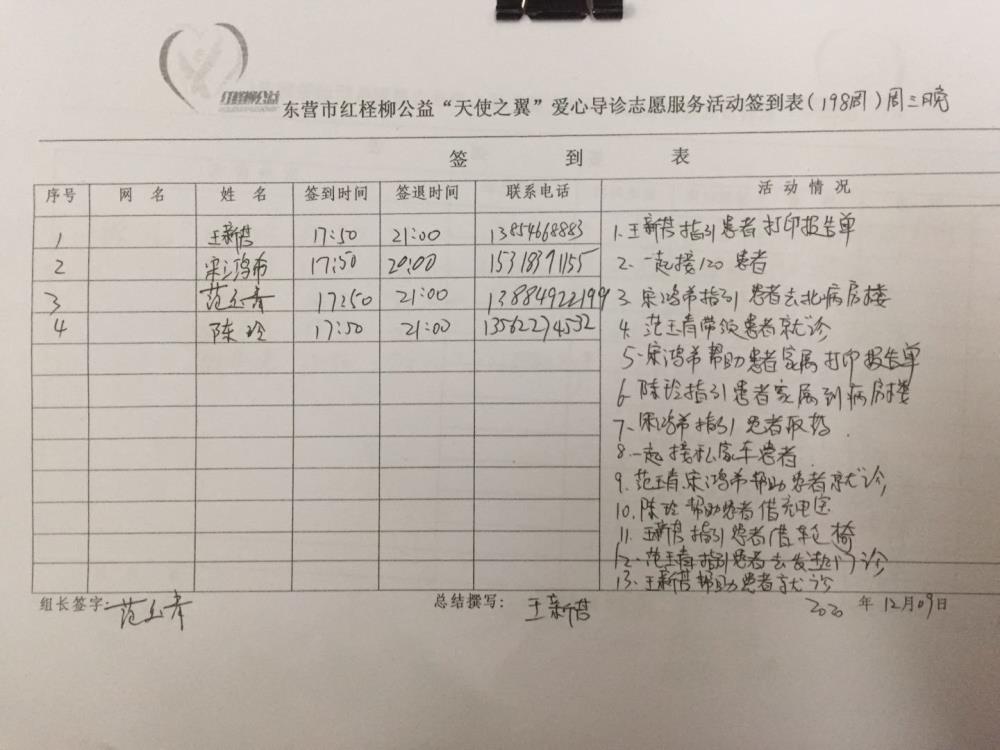 红柽柳公益
东营市红柽柳公益“天使之翼”爱心导诊志愿服务活动签到表(198周)周三晚
签 到 表
序号 网 名 姓 名 签到时间 签退时间 联系电话 活动情况
1 王新营 17:50 21:00 13854668883
2 宋鸿希 17:50 20:00 15318391155
3 范玉青 17:50 21:00 13884922199
4 陈玲 17:50 21:00 13562274532
1.王新营指引患者打印报告单
2.一起接120患者
3.宋鸿希指引患者去北病房楼
4.范玉青带领患者就诊
5.宋鸿希帮助患者家属打印报告单
6.陈玲指引患者家属到病房楼
7.宋鸿希指引患者取药.
8.一起接私家车患者
9.范玉青宋鸿希帮助患者就诊
10.陈玲帮助患者借充电宝
11.王新营指引患者借轮椅
12.范玉青指引患者去发热门诊
13.王新营帮助患者就诊
组长签字:范玉青 总结撰写:王新营 2020年12月09日